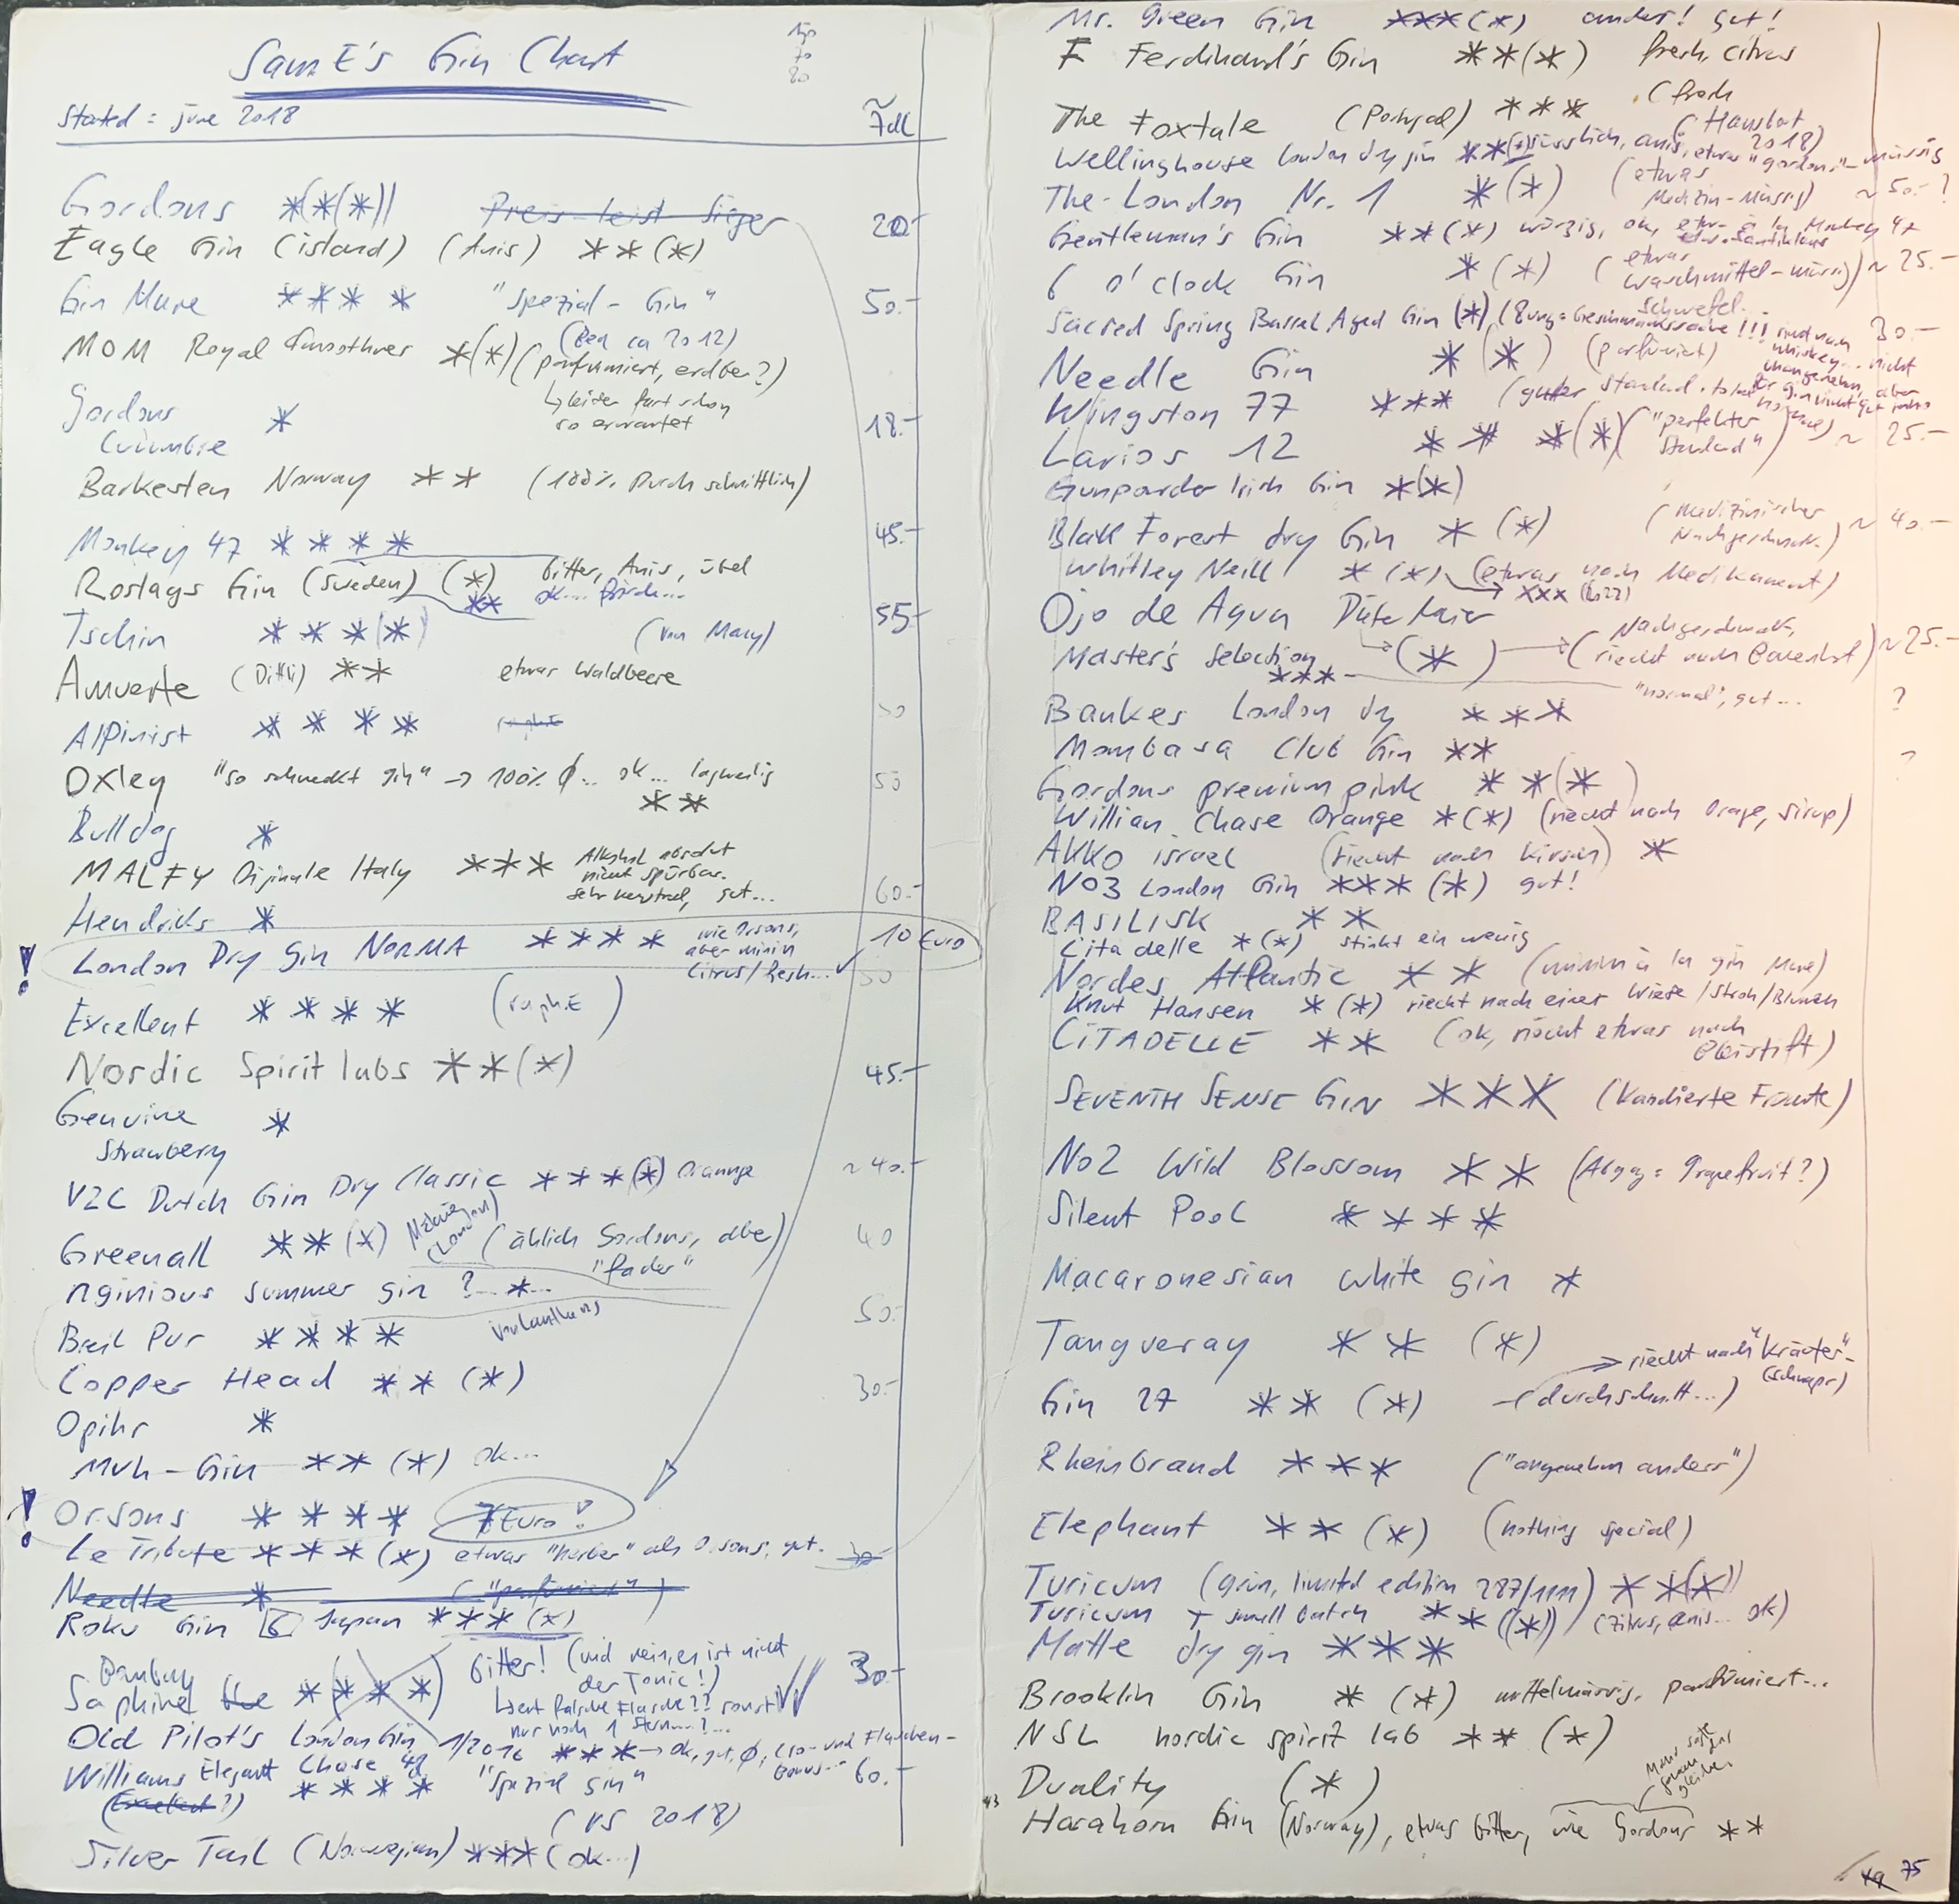 SamE's Gin Chart
Started = june 2018
~ 7dl
Gordons *(*(*)) Preis-leist-Sieger 20.-
Eagle Gin (island) (Anis) **(*)
Gin Mare **** "Spezial-Gin" 50.-
MOM Royal Smoothner *(*) (parfumiert, erdbe?) (Bea ca 2012)
↳ leider fast schon
so erwartet
Gordons * 18.-
Cucumbre
Barkesten Norway ** (100% Durchschnittlich)
Monkey 47 **** 45.-
Rostags Gin (Sweden) (*) bitter, Anis, übel
** ok...
Tschin ***(*) (von Mary) 55.-
Amuerte (Ditti) ** etwas Waldbeere
Alpinist **** 50
Oxley "so schmeckt gin" → 100% ϕ... ok... lagweilig 50
**
Bulldog *
MALFY Originale Italy *** Alkohol absolut
nicht spürbar.
sehr neutral, gut... 60.-
Hendricks *
! London Dry Gin NORMA **** wie Orsons, 10 Euro
aber minim
Citrus/fresh... 50
Excellent **** (raphE)
Nordic Spirit labs **(*) 45.-
Genuine *
Strawberry
V2C Dutch Gin Dry Classic ***(*) Orannge ~40.-
Greenall **(*) (London) (ählich Gordons, aber) 40
"fader"
nginious summer gin ?...*... 50.-
Breil Pur ****
Copper Head **(*) 30.-
Opihr *
Muh-Gin **(*) ok...
! Orsons **** 7 Euro!
Le Tribute ***(*) etwas "herber" als Orsons, gut. 30
Needle * ("parfümiert")
Roku Gin 6 Japan ***(*)
Bombay
Saphire *(***) bitter! (und nein, es ist nicht 30.-
der Tonic!)
↳ evt falsche Flasche?? sonst
nur noch 1 Stern...?...
Old Pilot's London Gin 1/2016 *** → ok, gut, ϕ, Clo- und Flaschen-
bonus...
Williams Elegant Chase 48 **** "Spezial Gin" 60.-
(Excellent?) (VS 2018)
Silver Tail (Norwegian) *** (ok...)
Mr. Green Gin ***(*) anders! gut!
F Ferdinand's Gin **(*) fresh, citrus
The Foxtale (Portugal) *** (fresh
(Hausbar
2018)
Wellinghouse london dry gin **(*) süsslich, anis, etwas "gordons"-mässig
The London Nr. 1 *(*) (etwas
Medizin-mässig) ~50.- ?
Gentleman's Gin **(*) würzig, ok, etw. à la Monkey 47
6 o'clock Gin *(*) (etwas
Waschmittel-mässig) ~25.-
Schwefel
Sacred Spring Barrel Aged Gin (*) (8ung = Geschmackssache!!! riecht nach 30.-
whiskey... nicht
unangenehm, aber
für gin nicht gut
Needle Gin *(*) (parfümiert)
Wingston 77 *** (guter standard. total normal)
Larios 12 ***(*) ("perfekter
Standard") ~25.-
Gunpowder Irish Gin *(*)
Black Forest dry Gin *(*) (Medizinischer
Nachgeschmack.) ~40.-
Whitley Neill *(*) (etwas nach Medikament)
→ xxx
Ojo de Agua Dieter Meier
(*) → (Nachgeschmack,
riecht nach ) ~25.-
Master's Selection
*** "normal", gut...
Bankes London dry *** ?
Mombasa Club Gin **
Gordons premium pink **(*) ?
Willian Chase Orange *(*) (riecht nach Orage, sirup)
AKKO israel (riecht nach Kirsch) *
NO3 London Gin ***(*) gut!
BASILISK **
Citadelle *(*) stinkt ein wenig
Nordes Atlantic ** (minim à la gin Mare)
Knut Hansen *(*) riecht nach einer Wiese/Stroh/Blumen
CITADELLE ** (ok, riecht etwas nach
Bleistift)
SEVENTH SENSE GIN *** (Kandierte Früchte)
No2 Wild Blossom ** (Abgang = Grapefruit?)
Silent Pool ****
Macaronesian white gin *
Tangveray **(*)
→ riecht nach "Kräuter"-
(schnaps)
Gin 27 **(*) (durchschnitt...)
RheinBrand *** ("angenehm anders")
Elephant **(*) (nothing special)
Turicum (grün, limited edition 287/1111) **(*)
Turicum + small batch **((*)) (Zitrus, anis... ok)
Matte dry gin ***
Brooklin Gin *(*) mittelmässig, parfümiert...
NSL nordic spirit lab **(*)
Duality (*)
Harahorn Gin (Norway), etwas bitter, wie Gordons **
75